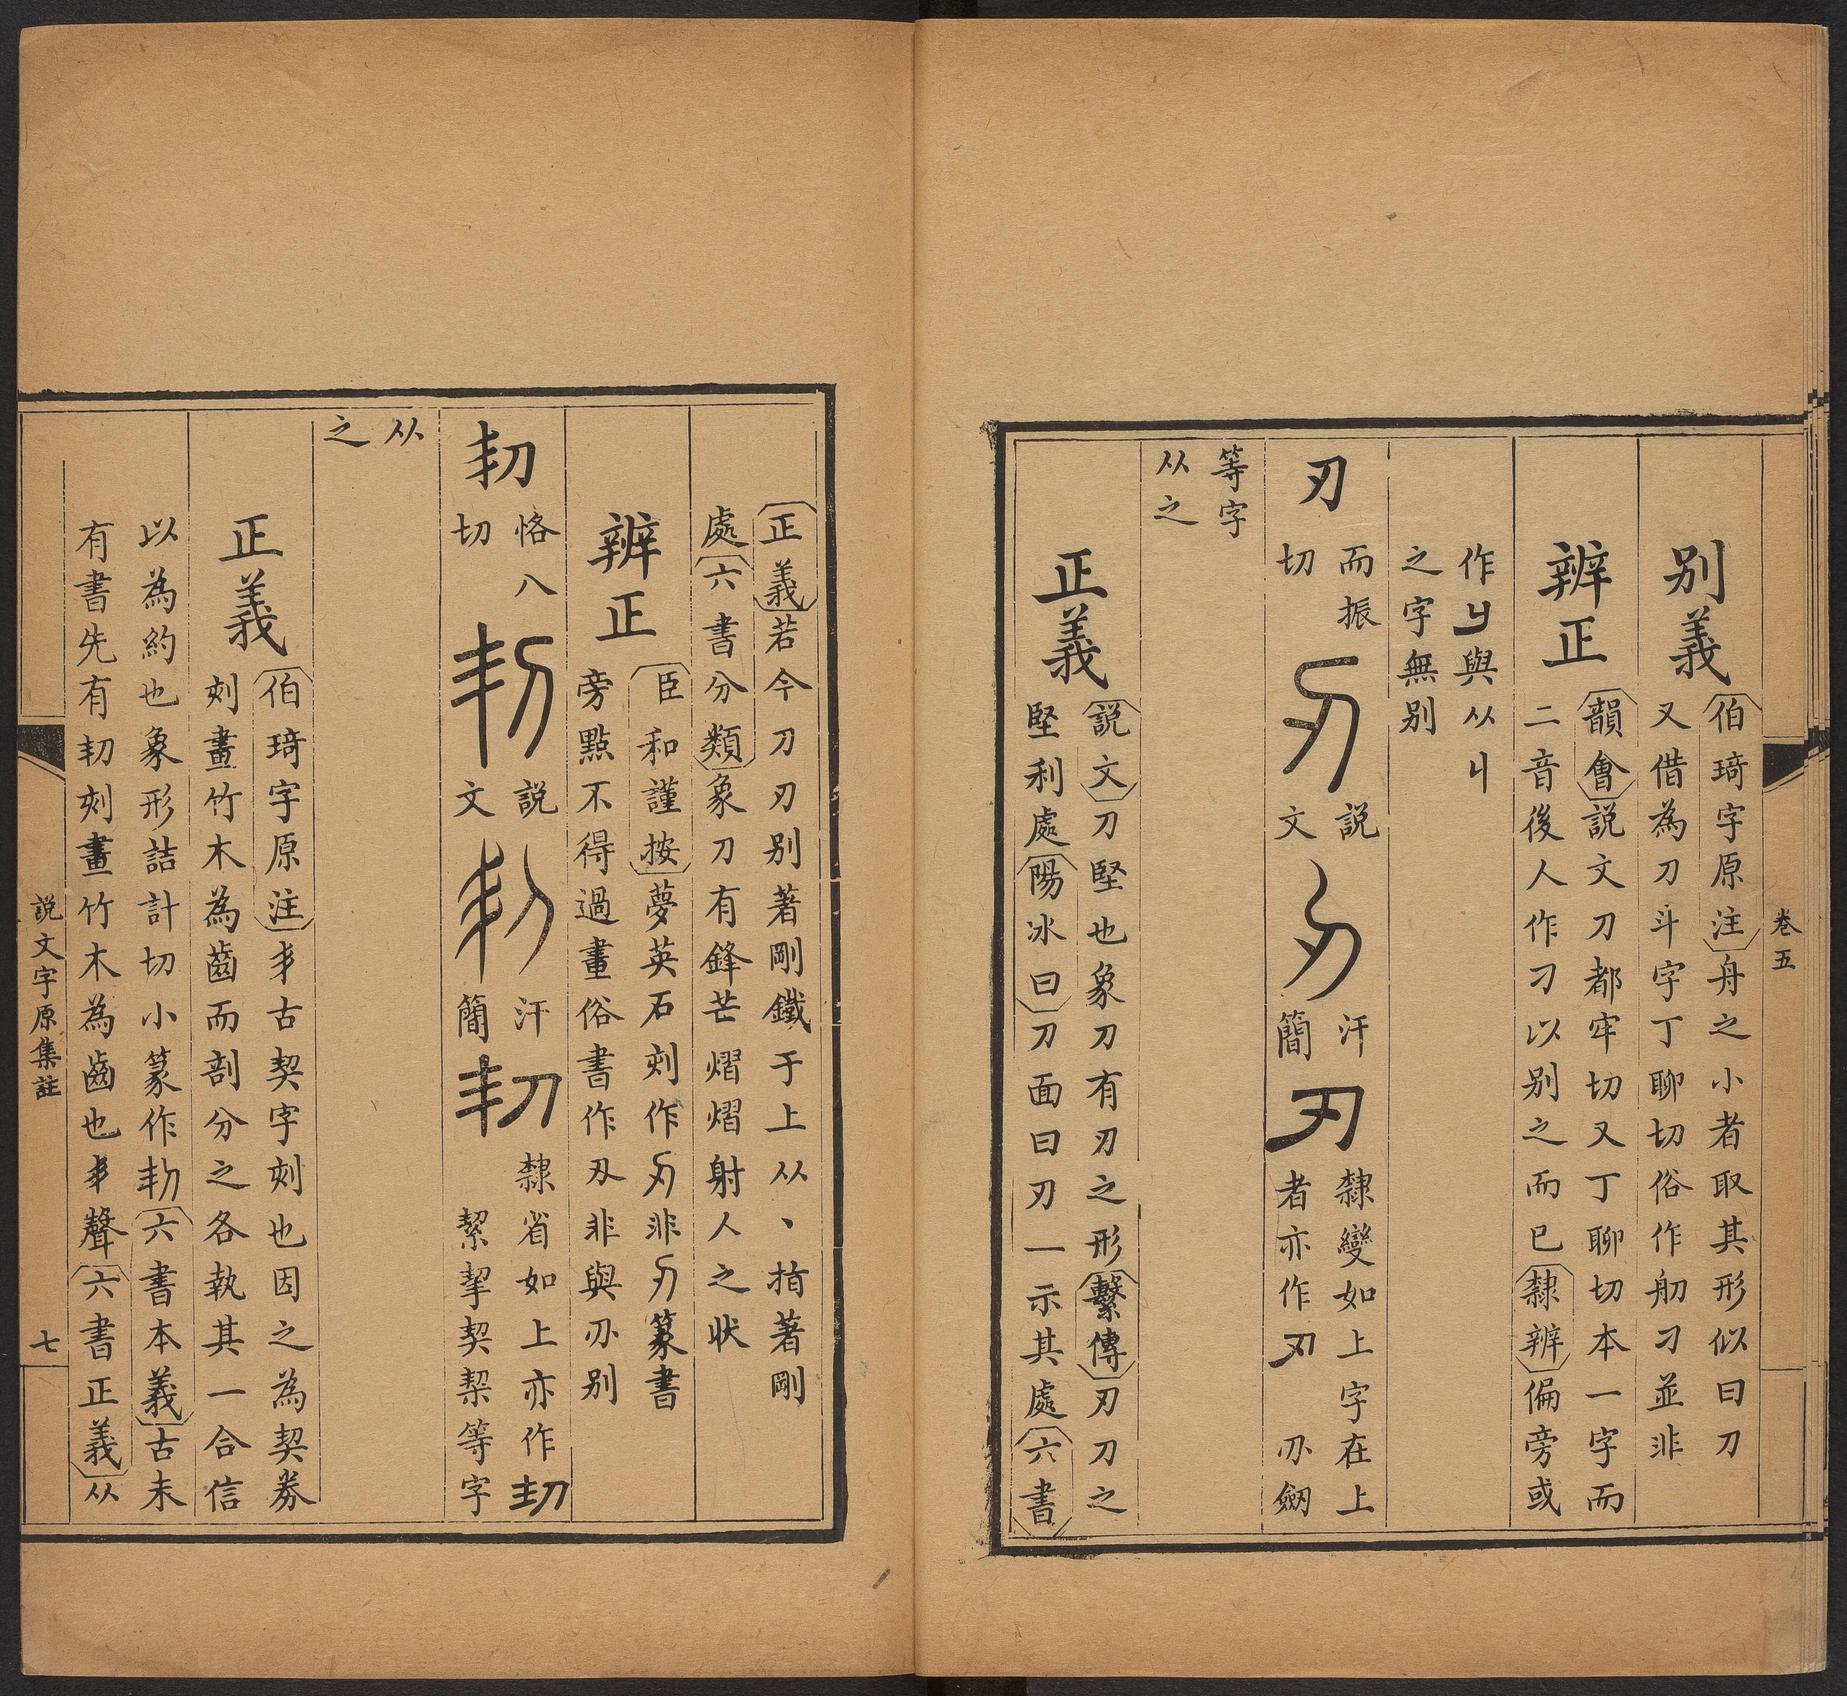 卷五
别義
伯琦字原注舟之小者取其形似曰刀
又借為刀斗字丁聊切俗作舠刁並非
辨正
韻會說文刀都牢切又丁聊切本一字而
二音後人作刁以别之而已隸辨偏旁或
作与從刂
之字無别
刃
而振
切
說
文
汗
簡
隸變如上字在上
者亦作刃 刅劒
等字
从之
正義
説文刀堅也象刀有刃之形繫傳刃刀之
堅利處陽冰曰刀面曰刃一示其處六書
正義若今刀刃别著剛鐵于上从丶指著剛
處六書分類象刀有鋒芒熠熠射人之状
辨正
臣和謹按夢英石刻作非篆書
旁點不得過畫俗書作刄非與刅别
㓞
恪八
切
說
文
汗
簡
隸省如上亦作
絜挈契栔等字
从
之
正義
伯琦字原注丯古契字刻也因之為契券
刻畫竹木為齒而剖分之各執其一合信
以為約也象形詰計切小篆作㓞六書本義古未
有書先有㓞刻畫竹木為齒也丯聲六書正義从
說文字原集註
七